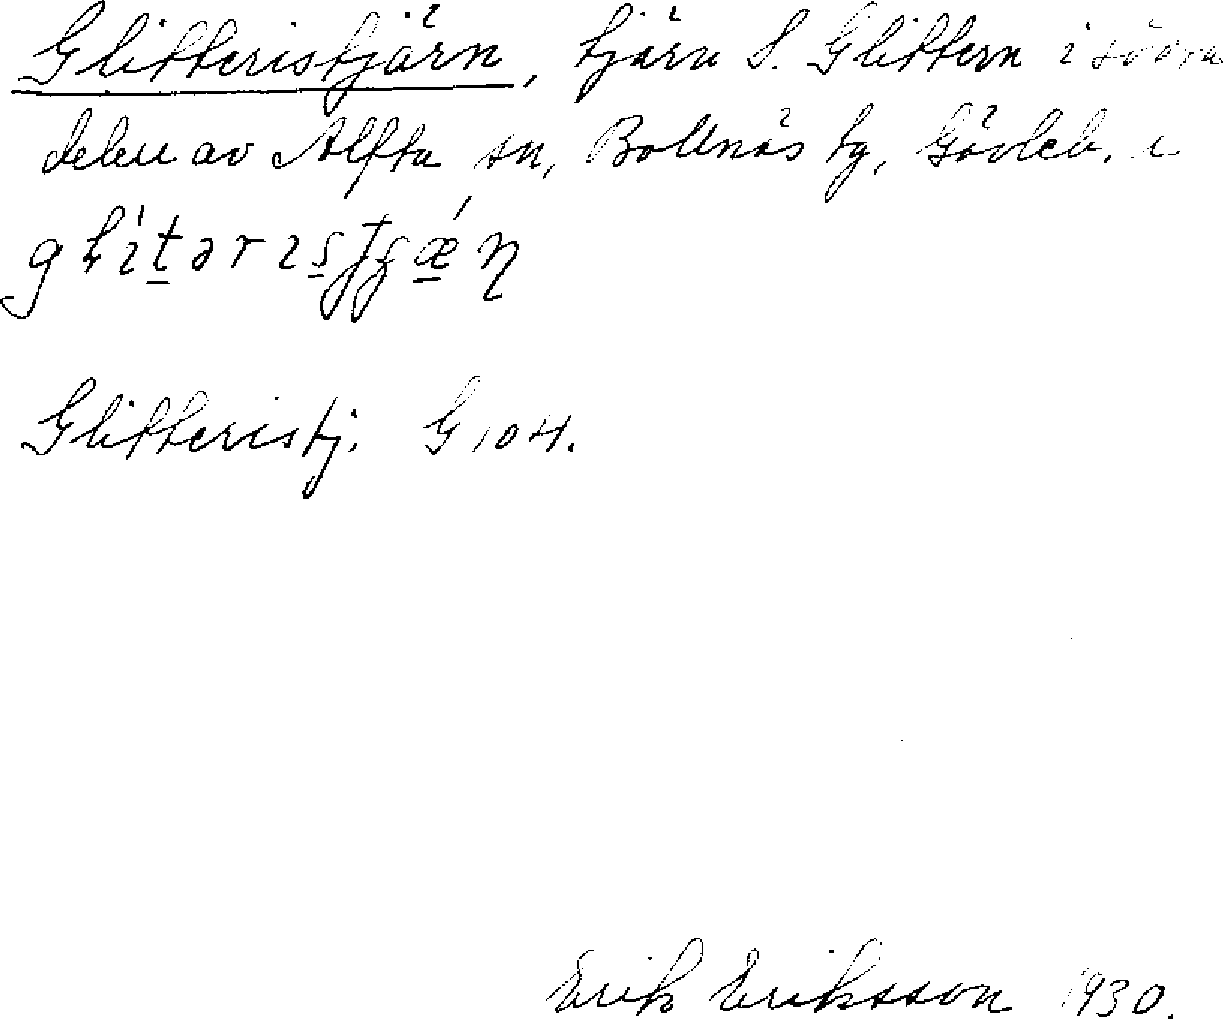 Glitteristjärn, tjärn S. Glittern i södra
delen av Alfta sn, Bollnäs tg, Gävleb. l
Glitteristj. G 104.
Erik Eriksson 1930.